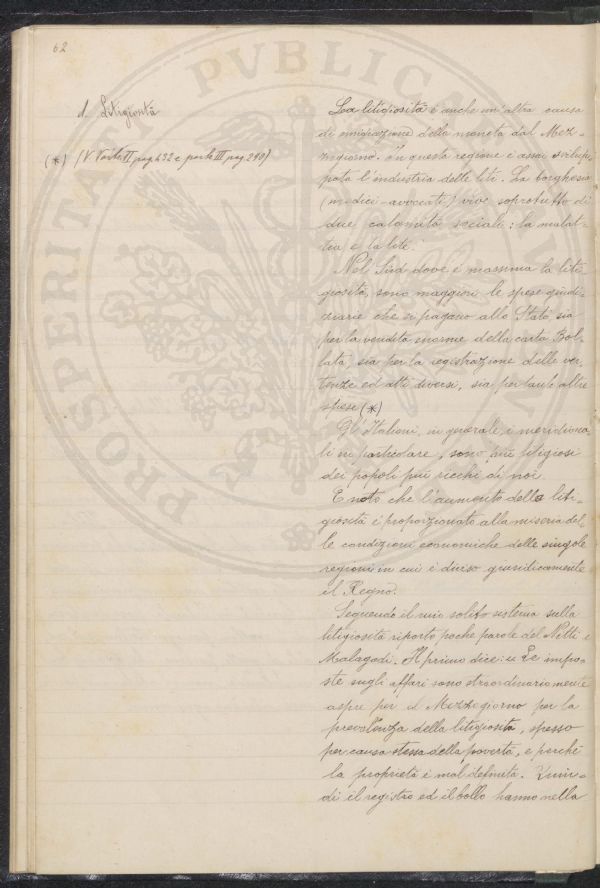 62
1. Litigiosità
(*) (V. Parte II pag. 432 e parte III pag. 240)
La litigiosità è anche un'altra causa
di emigrazione della moneta dal Mez-
zogiorno. In questa regione è assai svilup-
pata l'industria delle liti. La borghesia
(medici-avvocati) vive soprotutto di
due calamità sociali: la malat-
tia e la lite.
Nel Sud dove è massima la liti-
giosità, sono maggiori le spese giudi-
ziarie che si pagano allo Stato, sia
per la vendita enorme della carta Bol-
lata, sia per la registrazione delle ver-
tenze ed atti diversi, sia per tante altre
spese (*)
Gl'Italiani, in generale, i meridiona-
li in particolare, sono più litigiosi
dei popoli più ricchi di noi.
E noto che l'aumento della liti-
giosità è proporzionato alla miseria del-
le condizioni economiche delle singole
regioni in cui è diviso giuridicamente
il Regno.
Seguendo il mio solito sistema sulla
litigiosità riporto poche parole del Nitti e
Malagodi. Il primo dice: « Le impo-
ste sugli affari sono straordinariamente
aspre per il Mezzogiorno per la
prevalenza della litigiosità, spesso
per causa stessa della povertà, e perchè
la proprietà è mal definita. Quin-
di il registro ed il bollo hanno nella
PROSPERITATI PVBLICAE